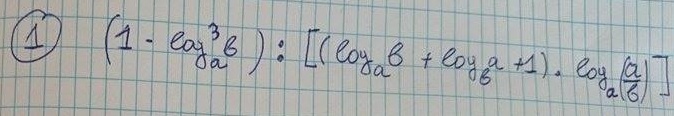 ① (1 - log³ₐb) : [(logₐb + log_b a + 1) · logₐ(a/b)]